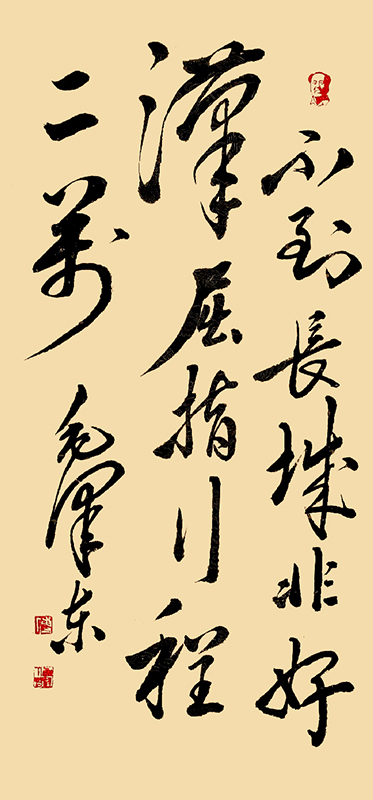 不到長城非好
漢屈指行程
二萬
毛澤东